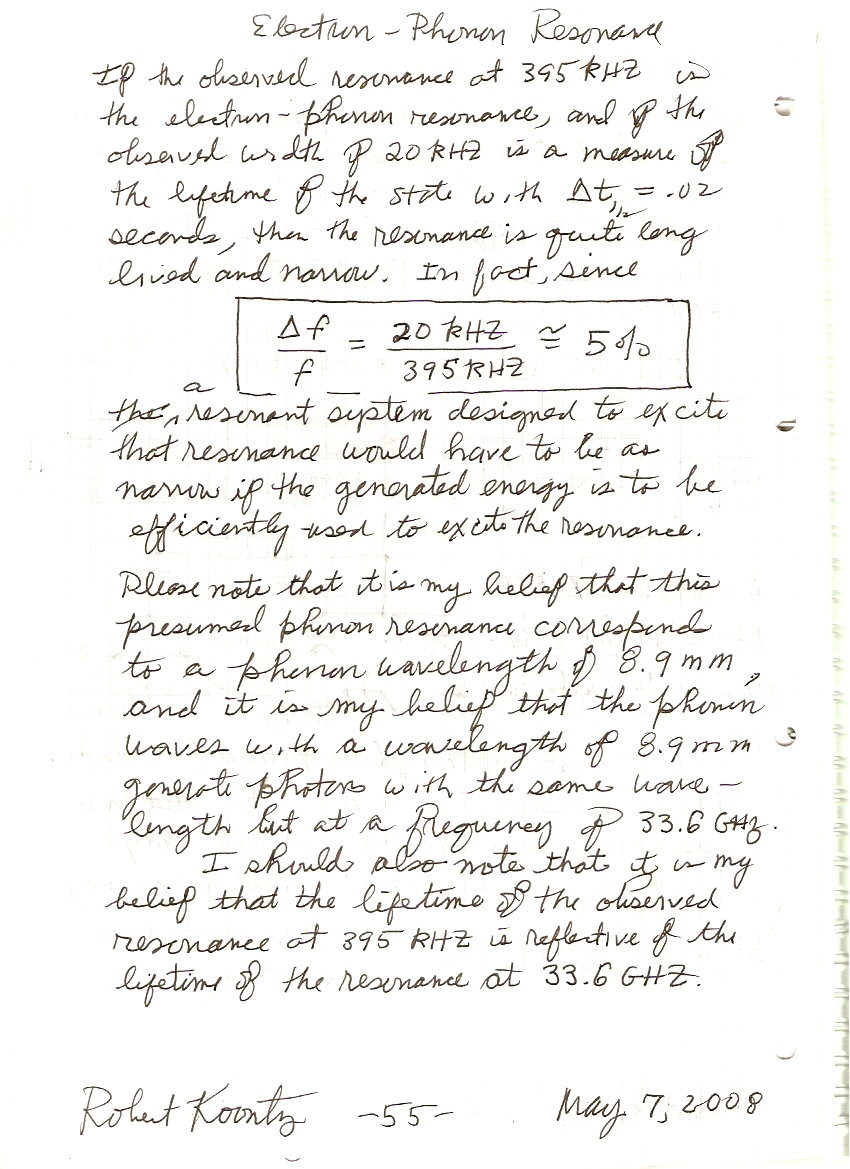 Electron - Phonon Resonance
If the observed resonance at 395 KHZ is
the electron-phonon resonance, and if the
observed width of 20 KHZ is a measure of
the lifetime of the state with Δt1/2 = .02
seconds, then the resonance is quite long
lived and narrow. In fact, since
Δf/f = 20 KHZ/395 KHZ ≅ 5%
a
the resonant system designed to excite
that resonance would have to be as
narrow if the generated energy is to be
efficiently used to excite the resonance.
Please note that it is my belief that this
presumed phonon resonance correspond
to a phonon wavelength of 8.9 mm,
and it is my belief that the phonon
waves with a wavelength of 8.9 mm
generate photons with the same wave-
length but at a frequency of 33.6 GHz.
I should also note that it is my
belief that the lifetime of the observed
resonance at 395 KHZ is reflective of the
lifetime of the resonance at 33.6 GHZ.
Robert Koontz -55- May 7, 2008